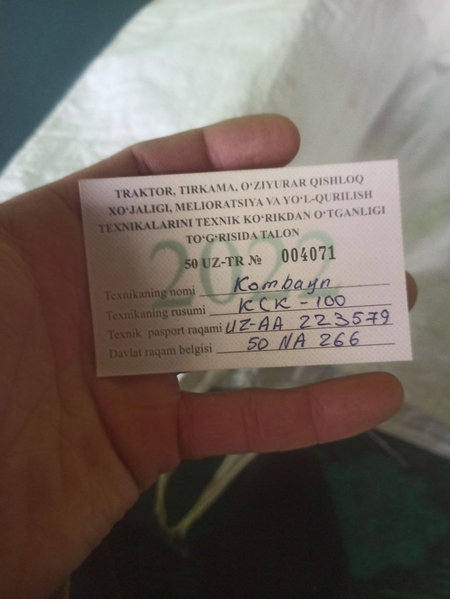 TRAKTOR, TIRKAMA, O‘ZIYURAR QISHLOQ
XO‘JALIGI, MELIORATSIYA VA YO‘L-QURILISH
TEXNIKALARINI TEXNIK KO‘RIKDAN O‘TGANLIGI
TO‘G‘RISIDA TALON
2022
50 UZ-TR № 004071
Texnikaning nomi Kombayn
Texnikaning rusumi KCK-100
Texnik pasport raqami UZ-AA 223579
Davlat raqam belgisi 50 NA 266